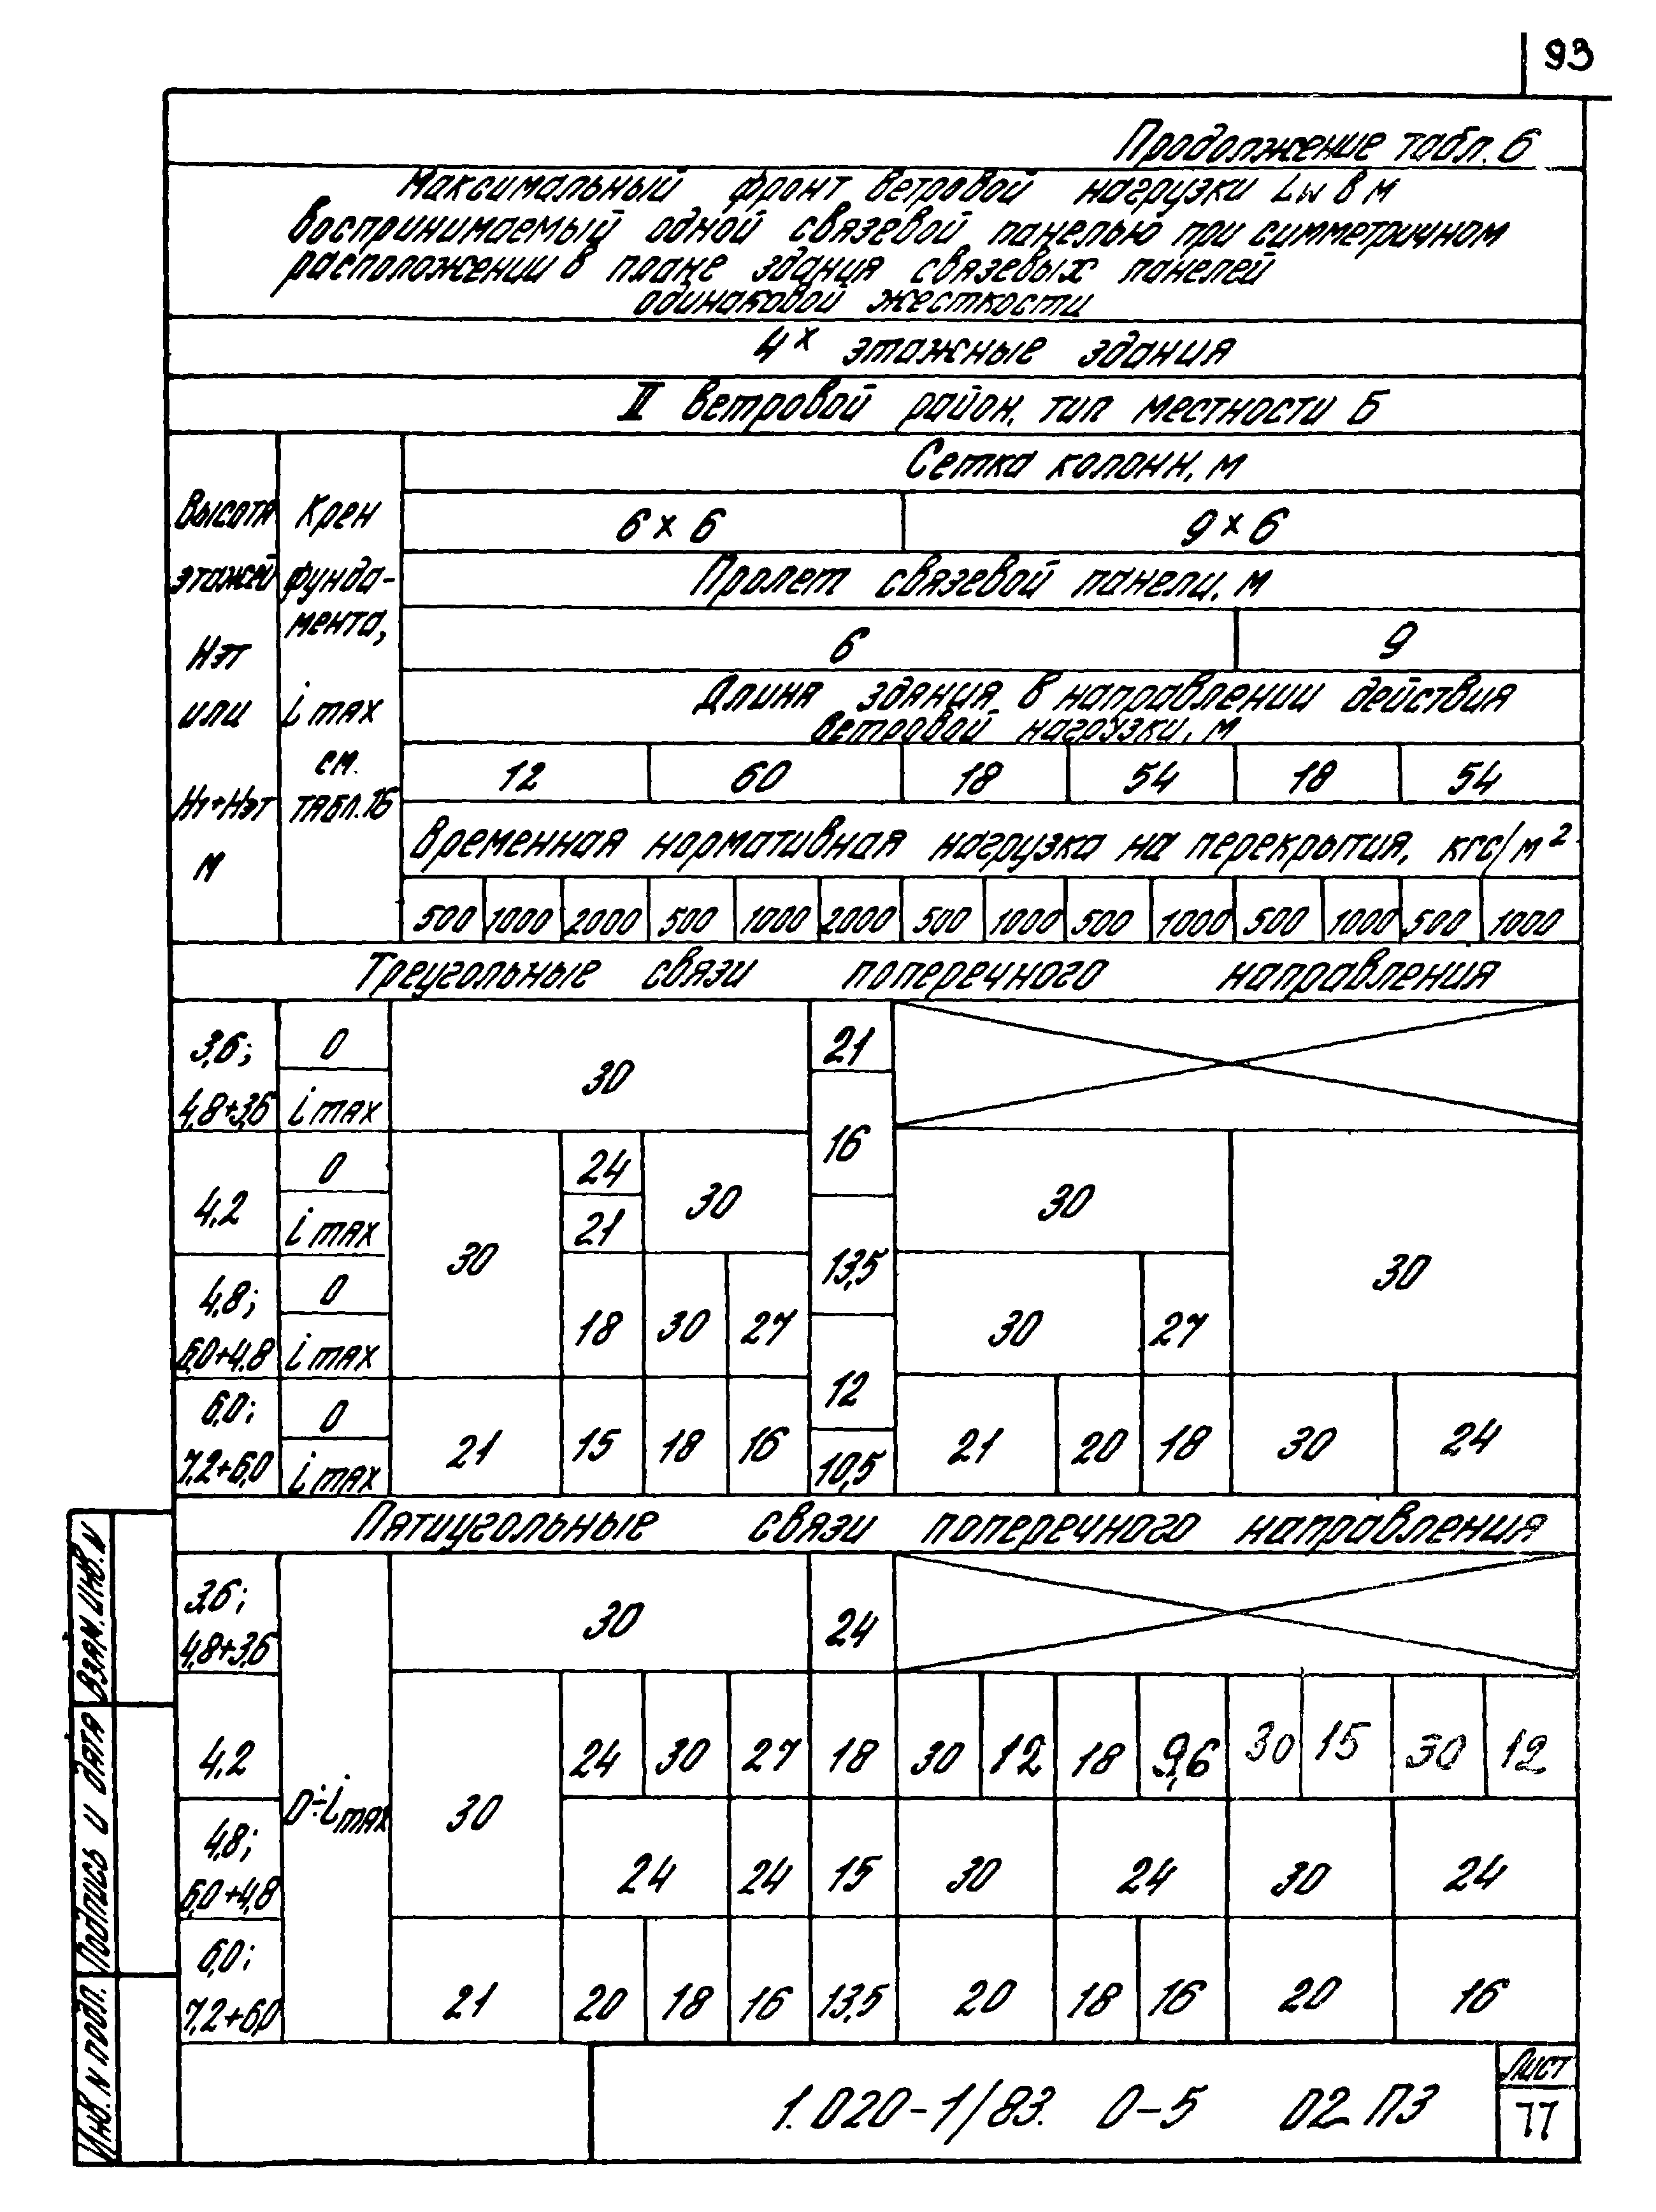 93
Продолжение табл. 6
Максимальный фронт ветровой нагрузки Lw в м
воспринимаемый одной связевой панелью при симметричном
расположении в плане здания связевых панелей
одинаковой жесткости
4х этажные здания
II ветровой район, тип местности Б
Сетка колонн, м
Высота Крен
6 × 6 9 × 6
этажей фунда-
Пролет связевой панели, м
мента,
Нэт 6 9
или i max
Длина здания в направлении действия
ветровой нагрузки, м
см.
12 60 18 54 18 54
Н1+Нэт табл. 16
Временная нормативная нагрузка на перекрытия, кгс/м²
м
500 1000 2000 500 1000 2000 500 1000 500 1000 500 1000 500 1000
Треугольные связи поперечного направления
3,6; 0 21
30
4,8+3,6 i max
16
0 24
4,2 30 30
i max 21
30 13,5 30
4,8; 0
18 30 27 30 27
6,0+4,8 i max
12
6,0; 0
21 15 18 16 21 20 18 30 24
7,2+6,0 i max 10,5
Пятиугольные связи поперечного направления
3,6;
30 24
4,8+3,6
4,2 24 30 27 18 30 12 18 9,6 30 15 30 12
0÷i max 30
4,8;
24 24 15 30 24 30 24
6,0+4,8
6,0;
21 20 18 16 13,5 20 18 16 20 16
7,2+6,0
Взам. инв. N
Подпись и дата
Инв. N подл.
1.020-1/83. 0-5 02 ПЗ
Лист
77